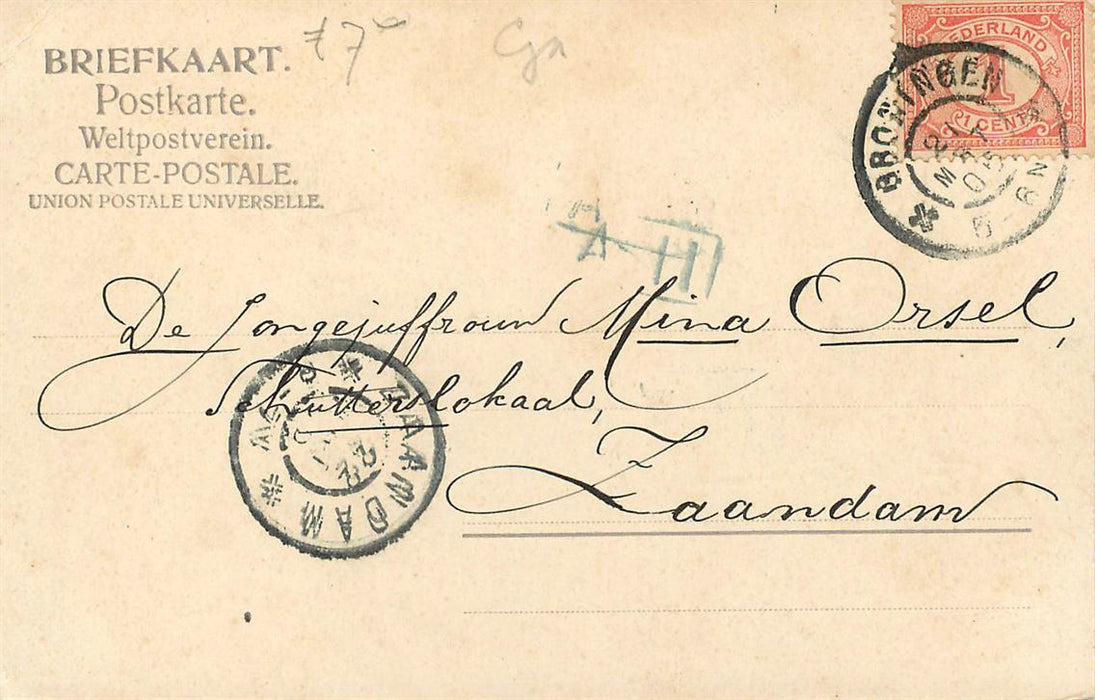 BRIEFKAART.
Postkarte.
Weltpostverein.
CARTE-POSTALE.
UNION POSTALE UNIVERSELLE.
NEDERLAND
1
1 CENT
GRONINGEN
De Jongejuffrouw Mina Orsel,
Schutterslokaal,
Zaandam
ZAANDAM